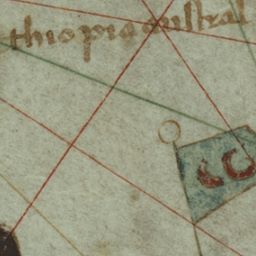 thiopia austral